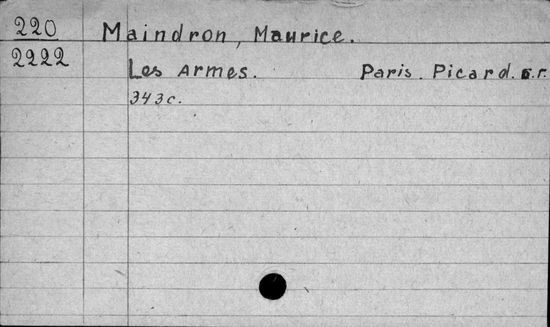 220 Maindron, Maurice.
2222
Les Armes. Paris. Picard. б.г.
343 c.